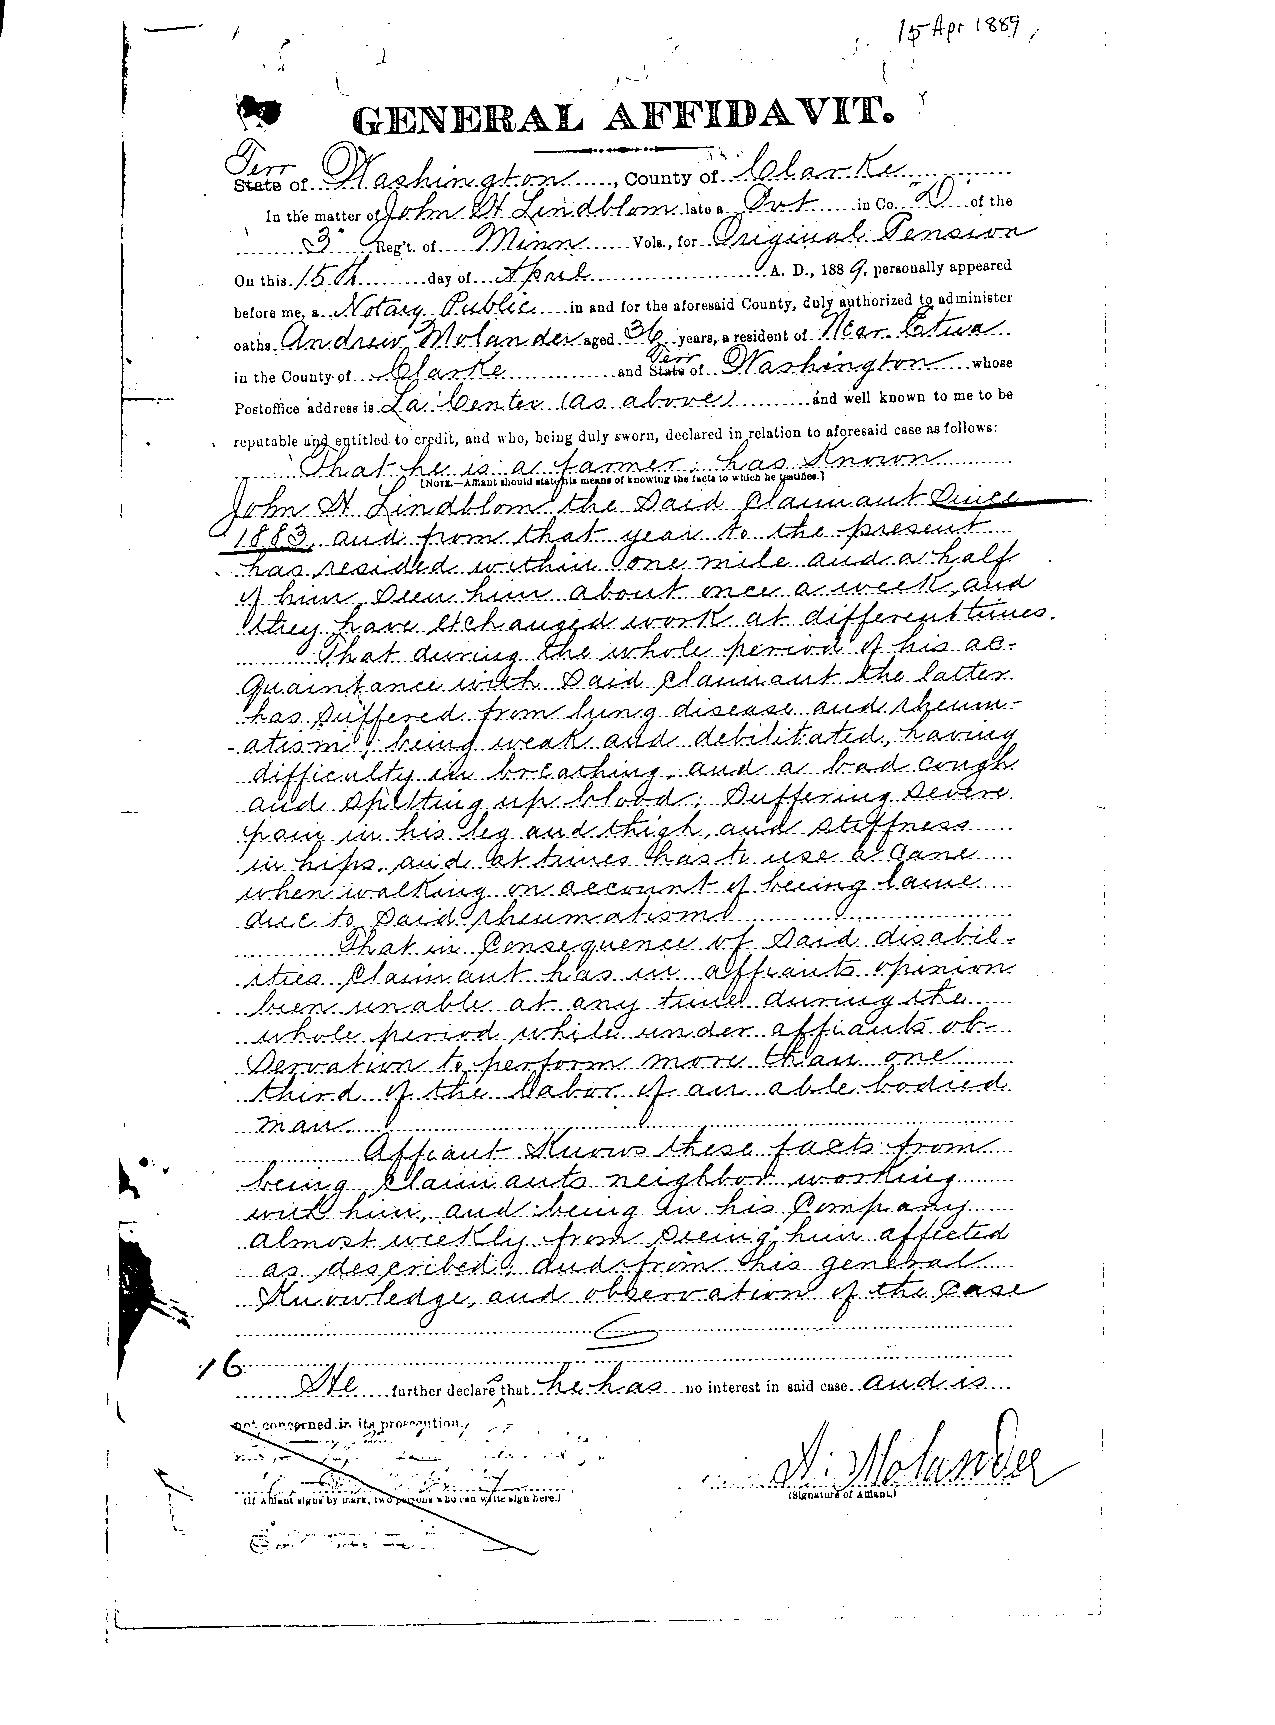 15 Apr 1889
GENERAL AFFIDAVIT.
Terr
State of Washington, County of Clarke
In the matter of John H Lindblom late a Pvt in Co. "D" of the
3" Reg't. of Minn Vols., for Original Pension
On this 15th day of April A. D., 1889, personally appeared
before me, a Notary Public in and for the aforesaid County, duly authorized to administer
oaths Andrew Molander aged 36 years, a resident of Near Etua
Terr
in the County of Clarke and State of Washington whose
Postoffice address is La Center (as above) and well known to me to be
reputable and entitled to credit, and who, being duly sworn, declared in relation to aforesaid case as follows:
That he is a farmer; has Known
[NOTE.—Affiant should state his means of knowing the facts to which he testifies.]
John H Lindblom the said claimant since
1883, and from that year to the present
has resided within one mile and a half
of him, seen him about once a week, and
they have exchanged work at different times.
That during the whole period of his ac-
quaintance with said claimant the latter
has suffered from lung disease and rheum-
-atism; being weak and debilitated, having
difficulty in breathing, and a bad cough
and spitting up blood; suffering severe
pain in his leg and thigh, and stiffness
in hips, and at times has to use a cane
when walking on account of being lame
due to said rheumatism
That in consequence of said disabil-
ities claimant has in affiants opinion
been unable at any time during the
whole period while under affiants ob-
servation to perform more than one
third of the labor of an able bodied
man
Affiant Knows these facts from
being claimants neighbor working
with him, and being in his company
almost weekly from seeing him affected
as described, and from his general
Knowledge, and observation of the case
16
He further declares that he has no interest in said case and is
not concerned in its prosecution,
A. Molander
(If Affiant signs by mark, two persons who can write sign here.)
(Signature of Affiant.)